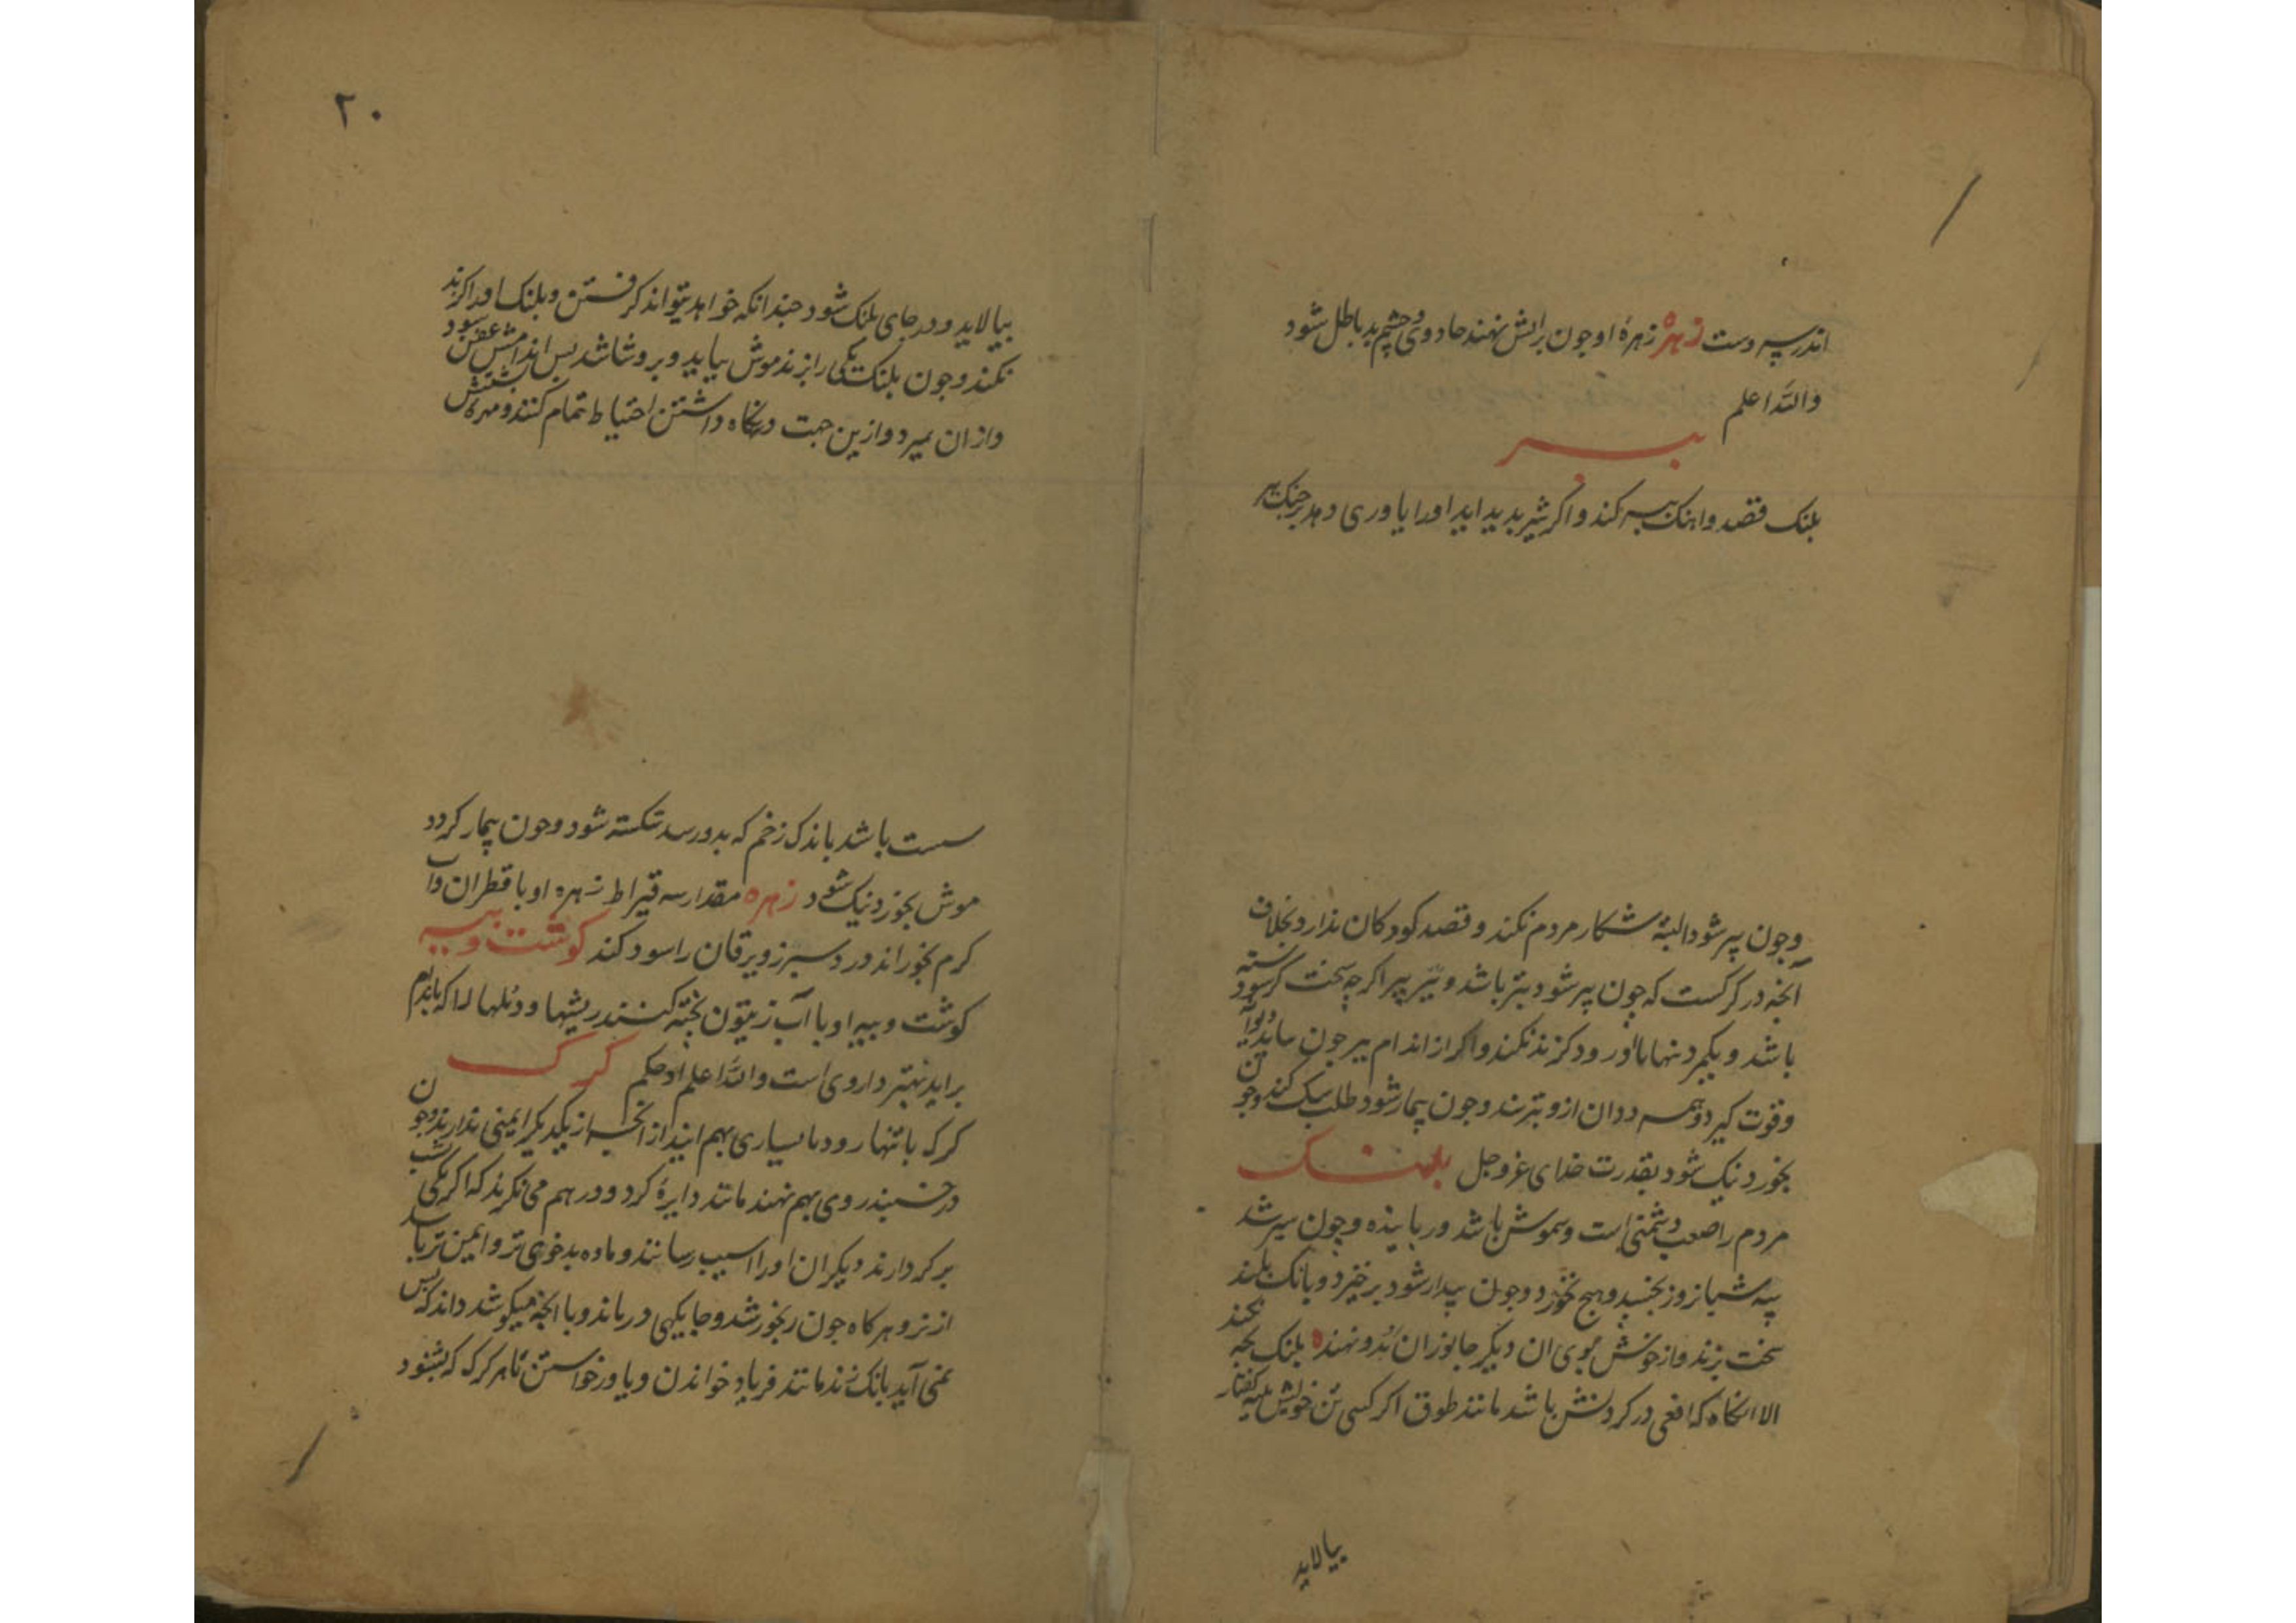 اندر سه دست زهره زهرهٔ او جون برایش نهند جادوی و چشم بد باطل شود
والله اعلم
ببر
بلنک قصد و اهنک ببر کند و اکر شیر بدید اید اورا یاوری دهد بر جنک ببر
و جون پیر شود البته شکار مردم نکند و قصد کودکان ندارد بخلاف
انجه در کرکست که جون پیر شود بتر باشد و شیر پیر اکر چه سخت کرسنه
باشد و بکمر د تنها رود کزند نکند و اکر از اندام ببر جون
و قوت کیرد و همه ددان ازو بترسند و جون بیمار شود طلب سک کند و جون
بخورد نیک شود بقدرت خدای عز و جل بلنک
مردم را صعب دشمنی است و شموش باشد و رباینده و جون سیر شد
سه شبانروز بخسبد و هیج نخورد و جون بیدار شود برخیزد و بانک بلند
سخت بزند و از خوش بوی ان دیکر جانوران بدو نهند بلنک بجه نکند
الا انکاه که افعی در کردنش باشد مانند طوق اکر کسی تن خویش کفتار
بیالاید
۲۰
بیالاید و در جای بلنک شود جندانکه خواهد بتواند کرفتن و بلنک اورا کزند
نکند و جون بلنک یکی را بزند موش بیاید و برو شاشد بس اندامش عفن شود
و از ان بمیرد و ازین جهت در نکاه داشتن احتیاط تمام کنند و مهرهٔ پشتش
سست باشد باندک زخم که بدو رسد شکسته شود و جون بیمار کردد
موش بخورد نیک شود زهره مقدار سه قیراط زهره او با قطران و آب
کرم بخوراند درد سبرز و یرقان را سود کند کوشت و بیه
کوشت و بیه او با آب زیتون بخته کنند ریشها و دنبلها را که باندام
براید بهتر داروی است والله اعلم و احکم کرک
کرک با تنها رود یا بسیاری بهم ایند از انجه از یکدیکر ایمنی ندارند و جون شب
درخسبند روی بهم نهند مانند دایرهٔ کرد و در هم می نکرند که اکر یکی
بر کردارند دیکران اورا اسیب رسانند و ماده بدخوی تر و ایمن تر باشد
از نر و هر کاه جون رنجور شد و جایکهی درماند و با انجه میکوشد داند که بس
نمی آید بانک زند مانند فریاد خواندن و یاور خواستن تا هر کرک که بشنود